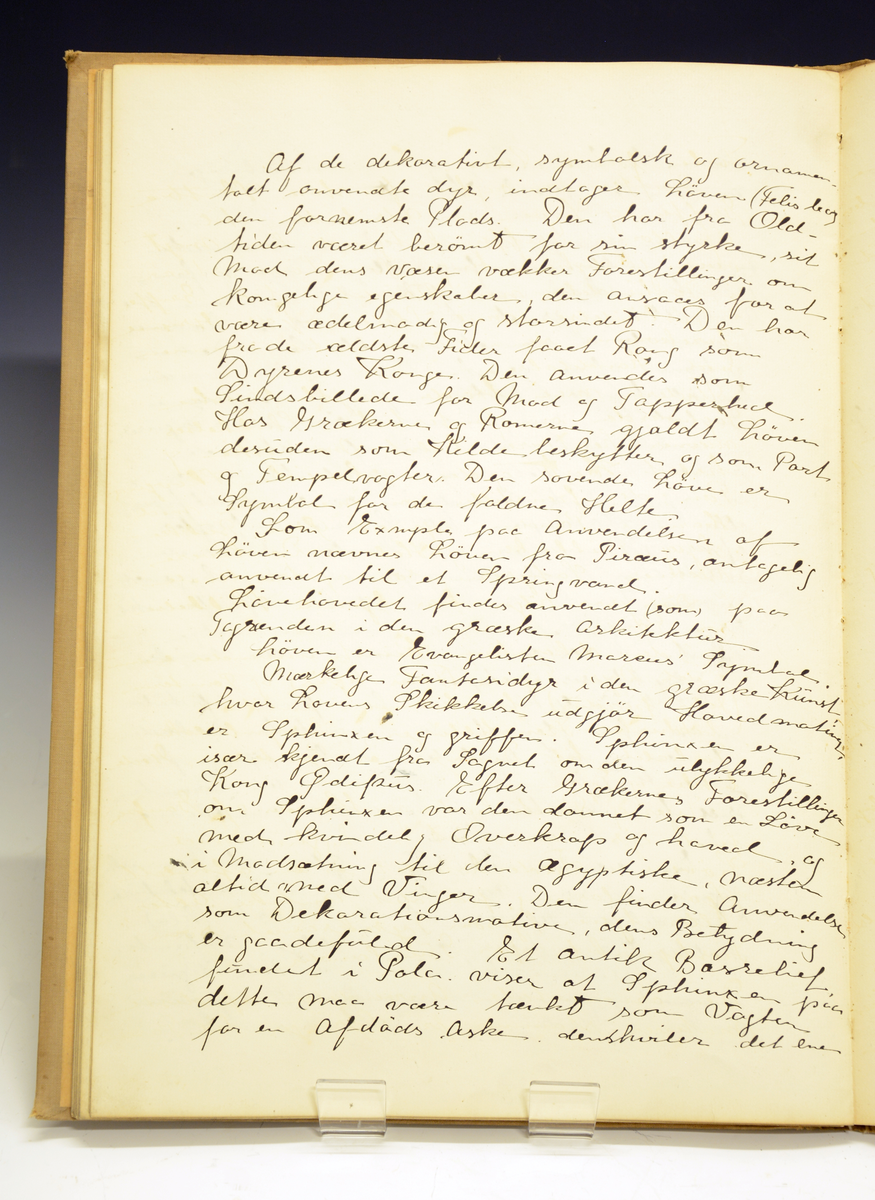 Af de dekorativt, symbolsk og ornamen-
talt anvendte dyr, indtager Löven (Felis leo)
den fornemste Plads. Den har fra Old-
tiden været berömt for sin styrke, sit
Mod dens Væsen vækker Forestillinger om
kongelige egenskaber, den ansaaes for at
være ædelmodig og storsindet. Den har
fra de ældste Tider faaet Rang som
Dyrenes Konge. Den anvendes som
Sindsbillede for Mod og Tapperhed.
Hos Grækerne og Romerne gjaldt Löven
desuden som Kilde beskytter og som Port
og Tempelvogter. Den sovende Löve er
Symbol for de faldne Helte.
Som Exempler paa Anvendelsen af
Löven nævnes Löven fra Piræus, antagelig
anvendt til et Springvand.
Lövehovedet findes anvendt (som) paa
Tagrenden i den græske Arkitektur
Löven er Evangelisten Marcus' Symbol.
Mærkelige Fantasidyr i den græske Kunst
hvor Lövens Skikkelse udgjör Hovedmotivet,
er Sphinxen og griffen. Sphinxen er
især kjendt fra Sagnet om den ulykkelige
Kong Ødipus. Efter Grækernes Forestillinger
om Sphinxen var den dannet som en Löve
med kvindelig Overkrop og hoved, og
i Modsætning til den ægyptiske, næsten
altid med Vinger. Den finder Anvendelse
som Dekorationsmotiv, dens Betydning
er gaadefuld. Et antik Basrelief
fundet i Pola. viser at Sphinxen paa
dette maa være tænkt som Vogter
for en Afdöds Aske. den hviler det ene